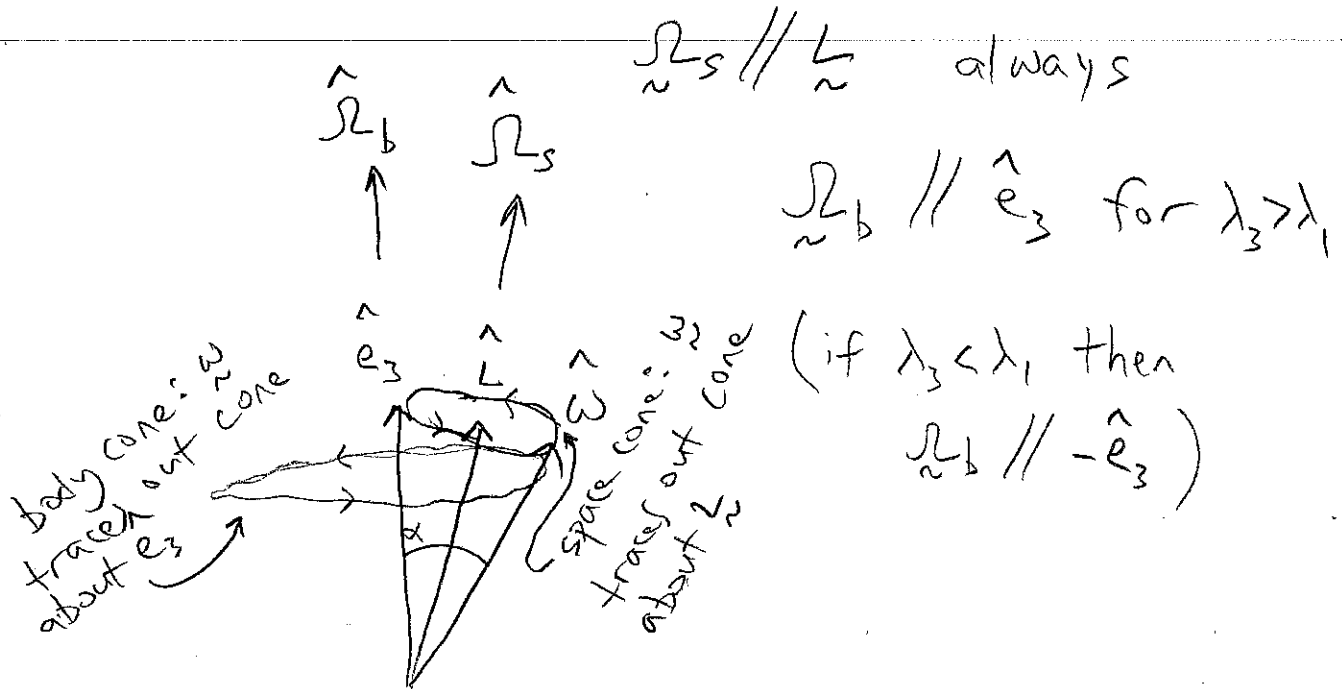 Ω̰s // L̰ always
Ω̂b Ω̂s
Ω̰b // ê₃ for λ₃>λ₁
ê₃ L̂ ω̂
(if λ₃<λ₁ then
Ω̰b // -ê₃)
body cone: ω̰
traces out cone
about e₃
α
space cone: ω̰
traces out cone
about L̰